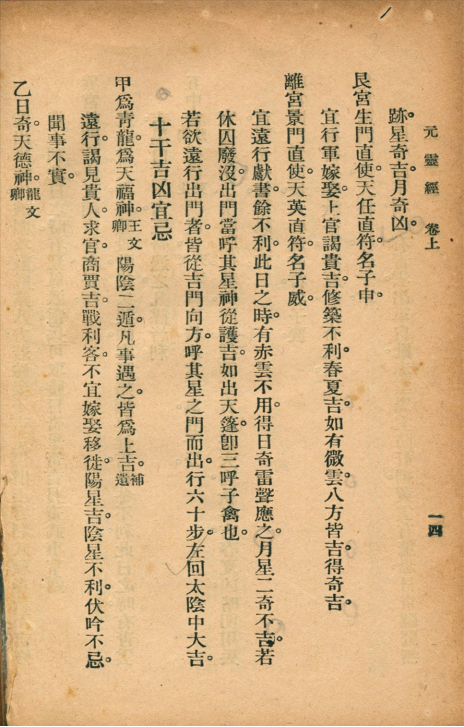 元靈經 卷上 一四
跡。星奇吉月奇凶。
艮宮生門直使天任直符名子申。
宜行軍嫁娶上官謁貴吉修築不利春夏吉如有微雲八方皆吉得奇吉。
離宮景門直使天英直符名子威。
宜遠行獻書餘不利此日之時有赤雲不用得日奇雷聲應之月星二奇不吉若
休囚廢沒出門當呼其星神從護吉如出天篷卽三呼子禽也。
若欲遠行出門者皆從吉門向方呼其星之門而出行六十步左回太陰中大吉。
十干吉凶宜忌
甲爲青龍爲天福神王文卿 陽陰二遁凡事遇之皆爲上吉。補遺
遠行謁見貴人求官商賈吉戰利客不宜嫁娶移徙陽星吉陰星不利伏吟不忌。
聞事不實。
乙日奇天德神龍文卿